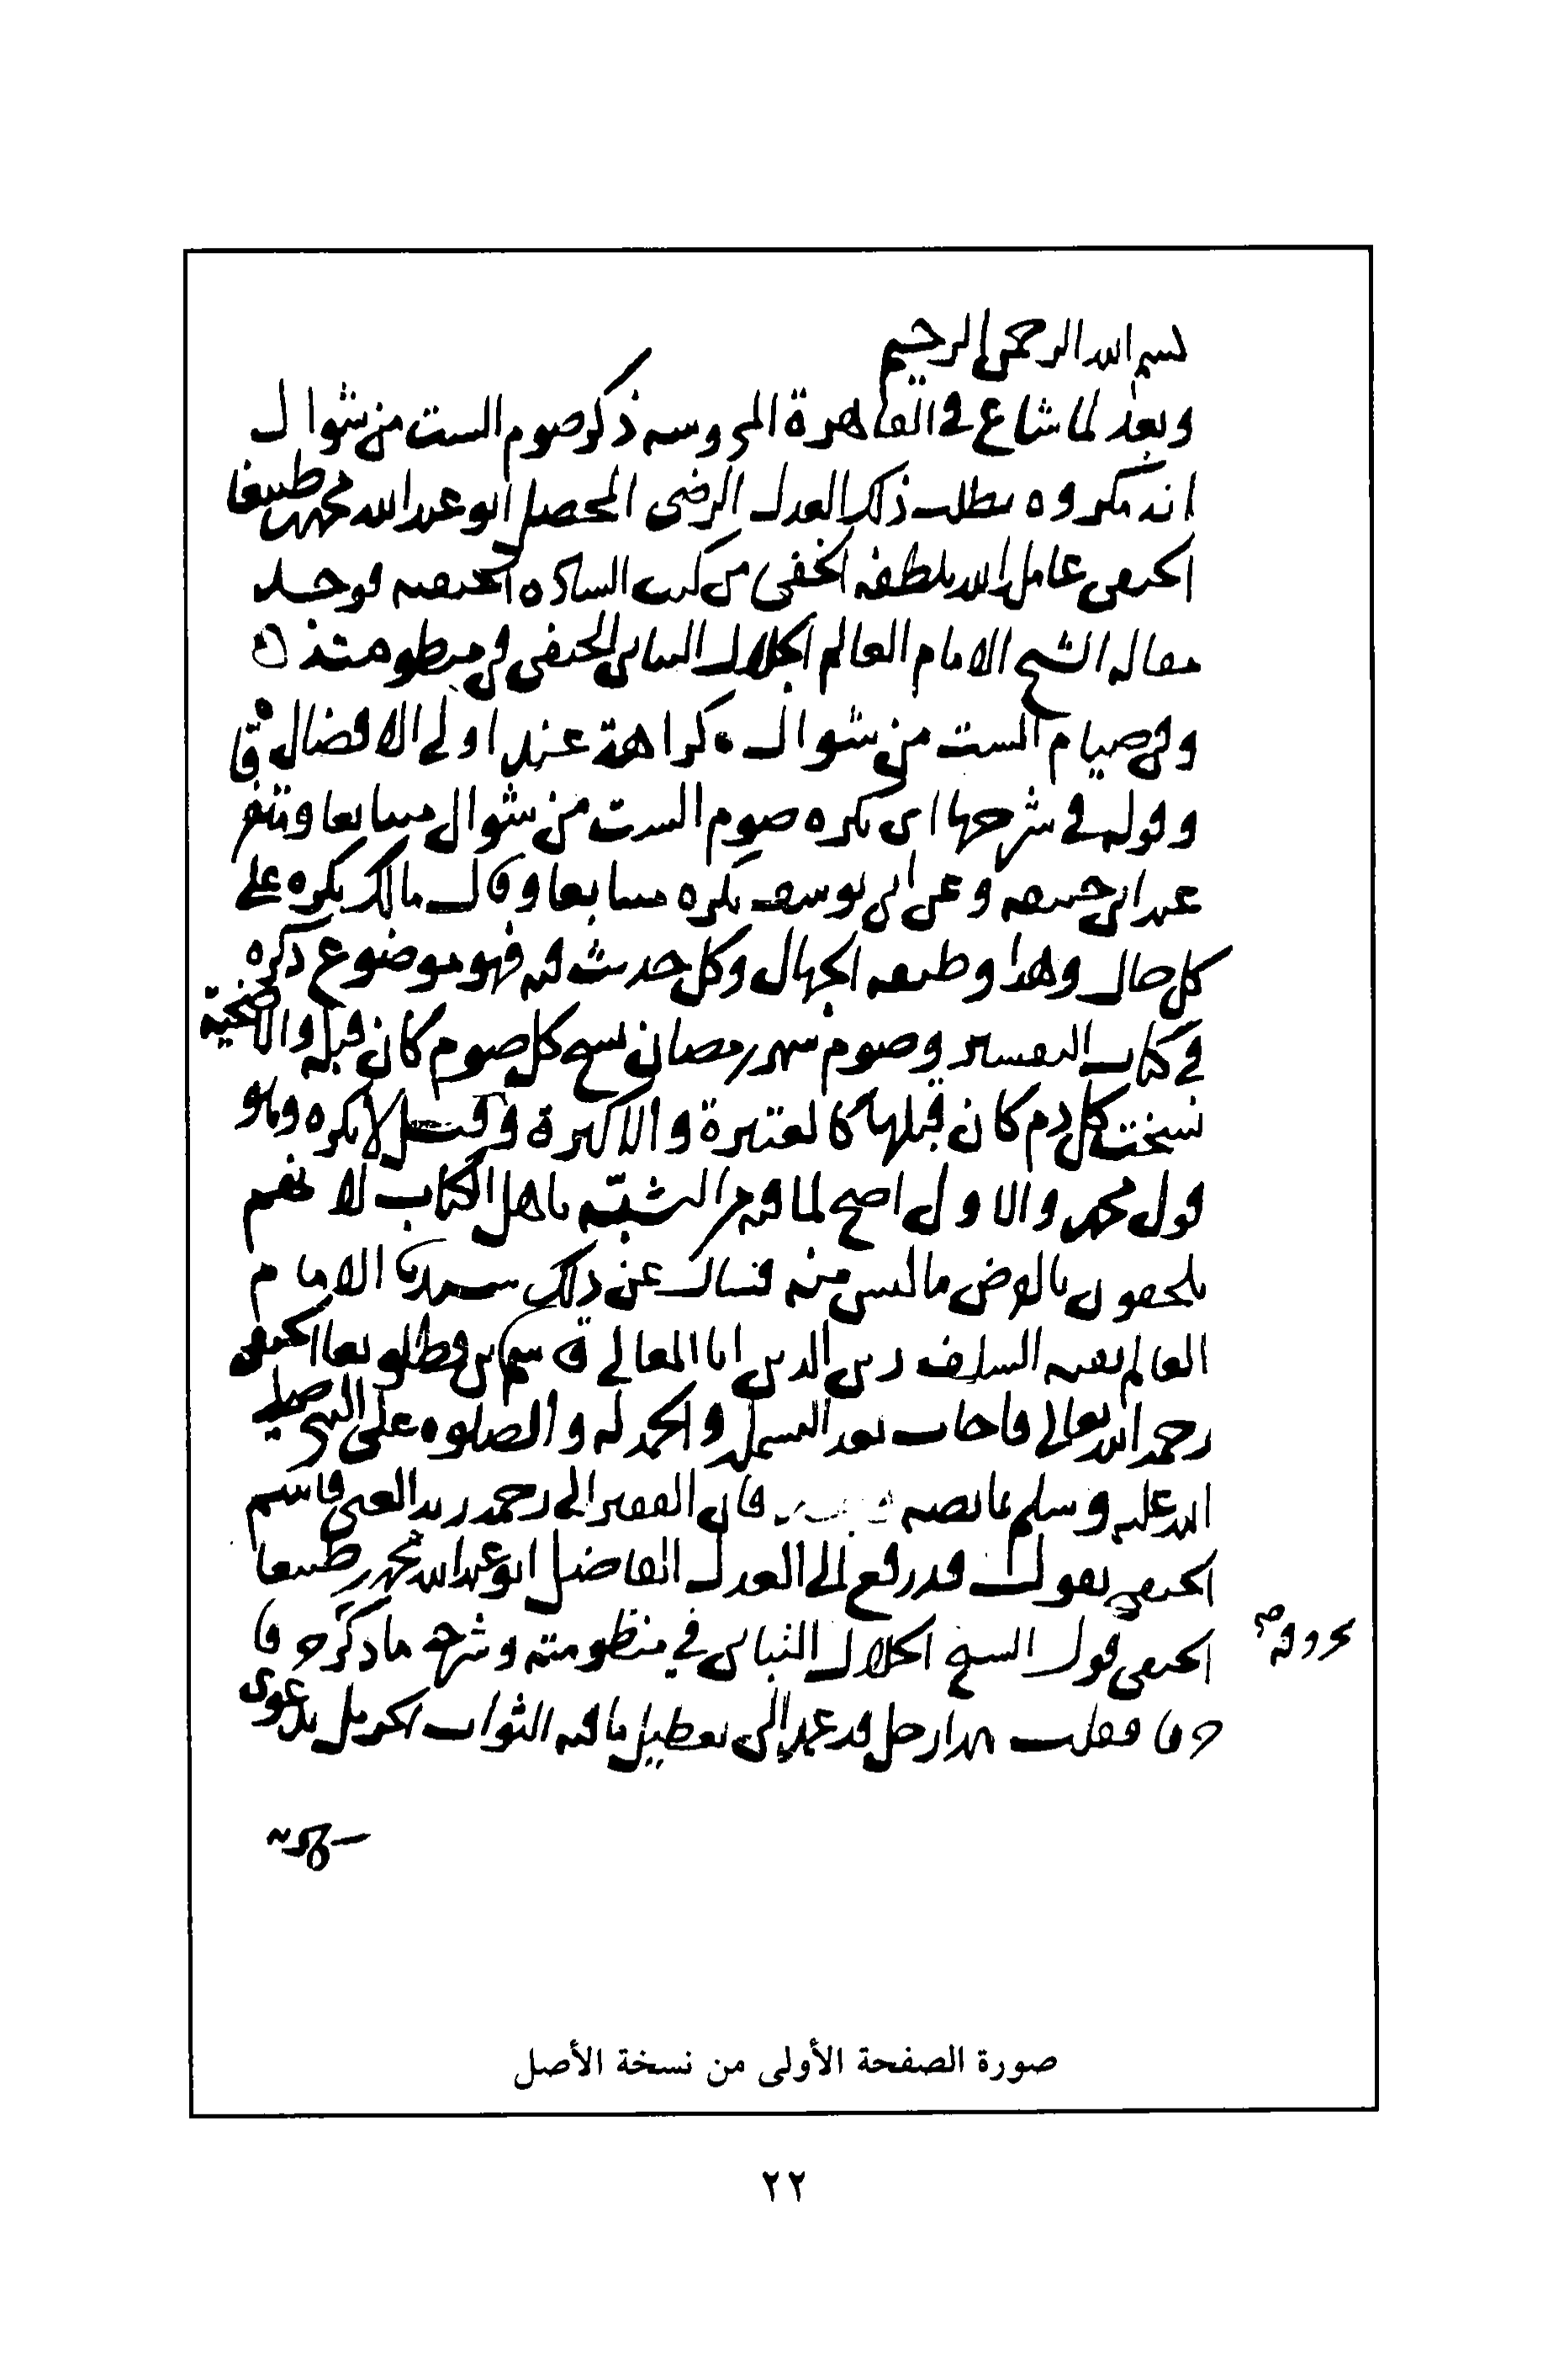 بسم الله الرحمن الرحيم
وبعد لما شاع في القاهرة المحروسه ذكر صوم الست من شوال
انه مكروه بطلب ذلك العدل الرضى المحصل ابو عبد الله محمد بن طيبغا
الحنفي عامل الله بلطفه الخفي من كتب الساده الحنفيه فوجد
مقاله الشيخ الامام العالم الجلال التباني الحنفي في منظومته
وفي صيام الست من شوال كراهة عند اولي الافضال
وقوله في شرحها اي يكره صوم الست من شوال متتابعا ومتفرقا
عند ابي حنيفه وعن ابي يوسف يكره متتابعا وقال مالك يكره على
كل حال وهذا وظيفه الجهال وكل حديث فيه فهو موضوع ذكره
في كتاب التفسير وصوم شهر رمضان نسخ كل صوم كان قبله والاضحية
نسخت كل دم كان قبلها كالعتيرة وقيل لا يكره وهو
قول محمد والاول اصح لما فيه من التشبه باهل الكتاب لانهم
يلحقون بالفرض ما ليس منه فسال عن ذلك سيدنا الامام
العالم بقيه السلف زين الدين ابا المعالي قاسم بن قطلوبغا الحنفي
رحمه الله تعالى فاجاب بعد البسمله والحمد له والصلوه على النبي صلى
الله عليه وسلم ما نصه فان الفقير الى رحمة ربه الغني قاسم
الحنفي يقول قد رفع الي العدل الفاضل ابو عبد الله محمد بن طيبغا
الحنفي قول الشيخ الجلال التباني في منظومته وشرحه ما ذكر
بحروفه
فقلت هذا رجل قد عمد الى تعطيل ما فيه الثواب الجزيل بدعوى
صورة الصفحة الأولى من نسخة الأصل
٢٢